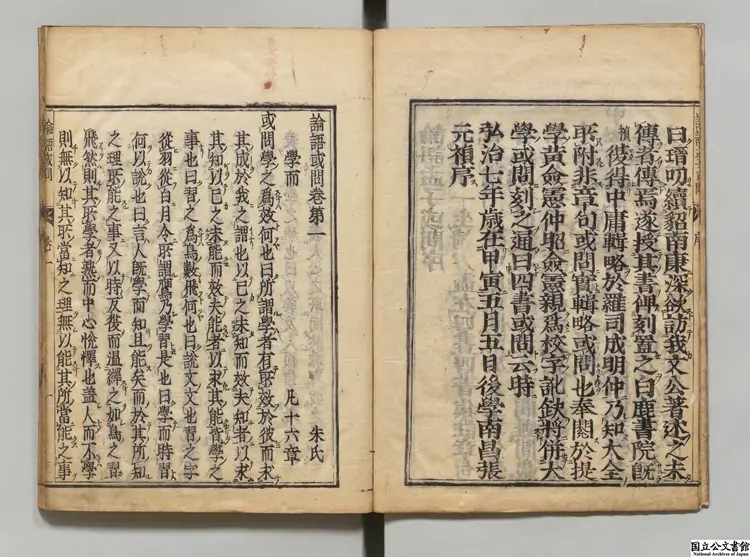 曰瑨叨續貂南康深欲訪我文公著述之未
傳者傳焉遂授其書俾刻置之白鹿書院旣
禎後得中庸輯略於羅司成明仲乃知大全
所附非章句或問實輯略或問也奉閱於提
學黃僉憲仲昭僉憲親爲校字訛缺將倂大
學或問刻之通曰四書或問云時
弘治七年歲在甲寅五月五日後學南昌張
元禎序
論語或問卷第一
朱氏
學而
凡十六章
或問學之爲效何也曰所謂學者有所效於彼而求
其成於我之謂也以已之未知而效夫知者以求
其知以已之未能而效夫能者以求其能皆學之
事也曰習之爲鳥數飛何也曰說文文也習之字
從羽從白月令所謂鷹乃學習是也曰學而時習
何以說也曰言人旣學而知且能矣而於其所知
之理所能之事又以時反復而溫繹之如鳥之習
飛然則其所學者熟而中心悅懌也蓋人而不學
則無以知其所當知之理無以能其所當能之事
論語或問
卷一
序
国立公文書館
National Archives of Japan